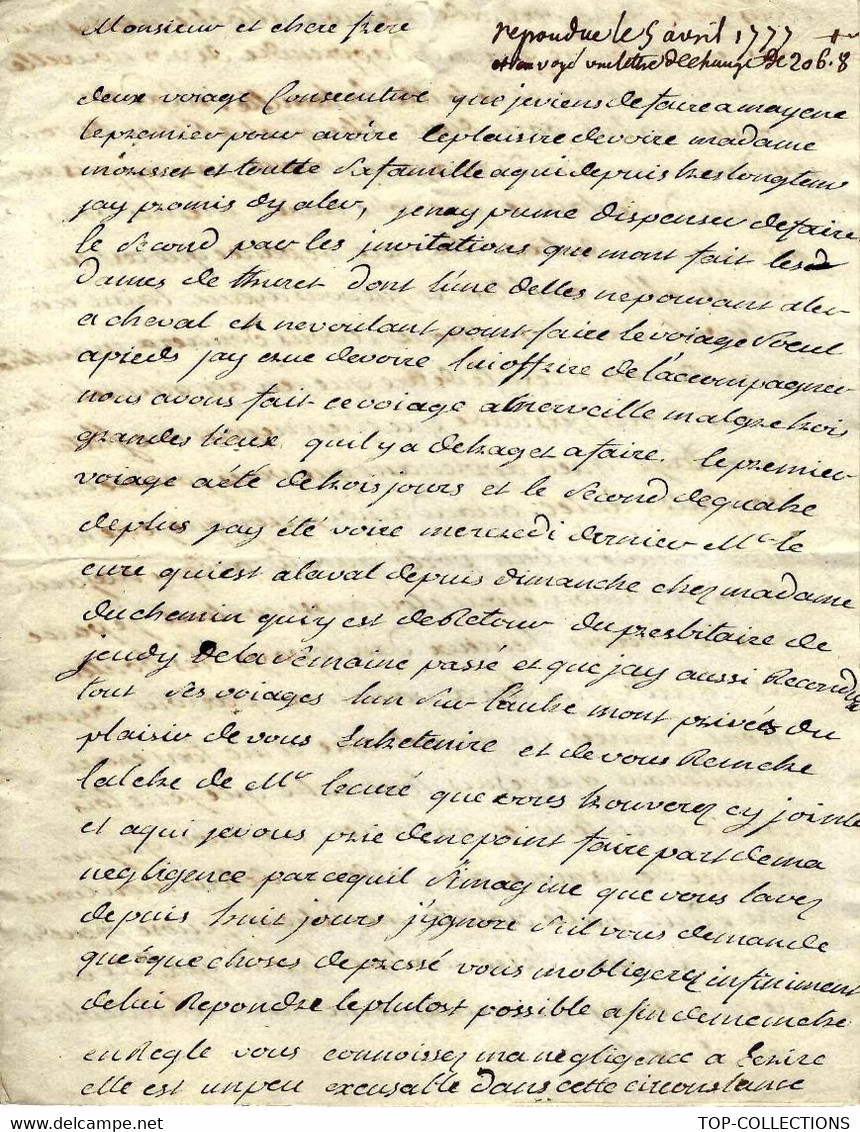 Monsieur et chere frere
repondue le 5 avril 1777
et envoyé une lettre de change de 206.8
deux voiage Consecutive que jeviens defaire a mayene
le premier pour avoire leplaisire devoire madame
morisset et toutte sa famille aqui depuis tres longtems
jay promis dy aler, jenay pume dispenser defaire
le second par les jnvitations que mont fait les d
dames de theret dont l'une delles ne pouvant aler
a cheval et ne voulant point faire le voiage seul
apieds jay crue devoire lui offrire de l'accompagner
nous avons fait ce voiage a merveille malgre trois
grandes lieux quil y a de traget a faire. le premier
voiage a été de trois jours et le second de quatre
de plus jay été voire mercredi dernier Mr le
cure qui est a laval depuis dimanche chez madame
duchemin qui y est de Retour du presbitaire de
jeudy de la semaine passé et que jay aussi Reconduitte
tout ses voiages lun sur l'autre mont privés du
plaisir de vous Entretenire et de vous Remetre
la letre de Mr le curé que vous trouverez cy jointe
et aqui je vous prie de ne point faire part de ma
negligence parcequil s'imagine que vous lavez
depuis huit jours j'ygnore s'il vous demande
quelque choses de pressé vous mobligerez infiniment
de lui Repondre le plutost possible afin de me metre
en Regle vous connoissez ma negligence a Ecrire
elle est un peu excusable dans cette circonstance
TOP-COLLECTIONS